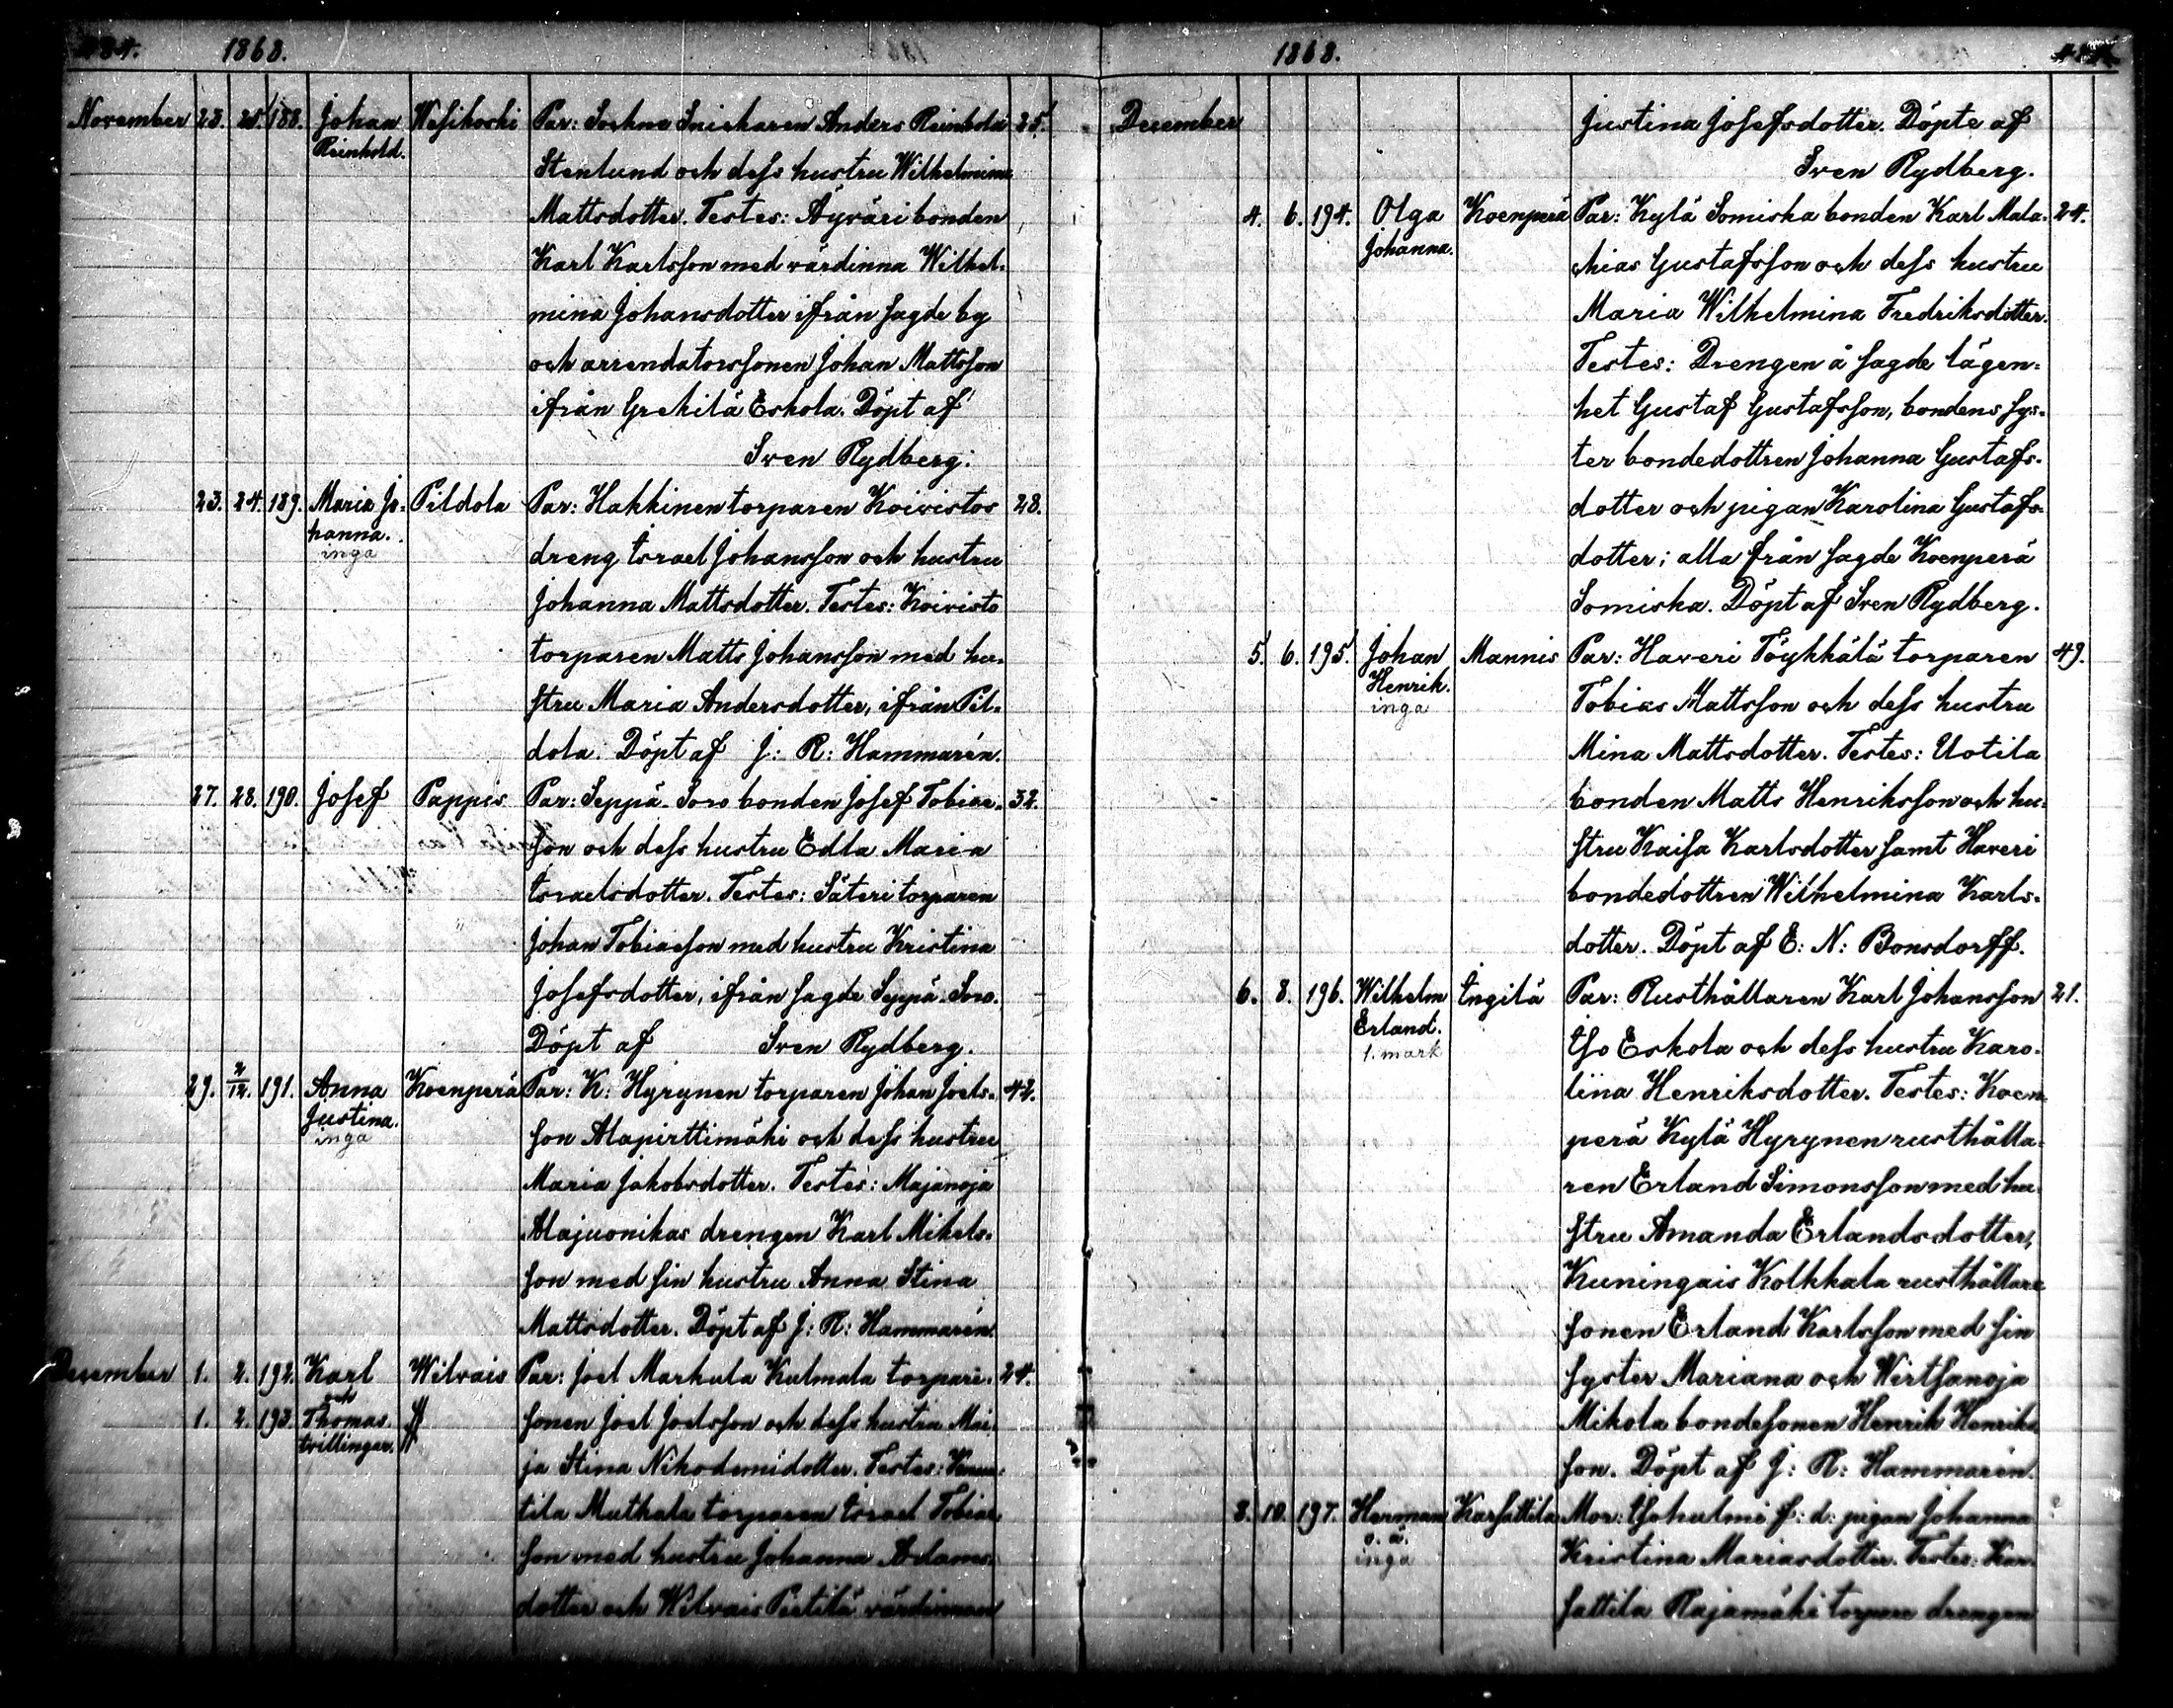 1868.
November 23. 25. 188. Johan Wesikoski Par: Sockne Snickaren Anders Reinhold 25.
Reinhold.
Stenlund och dess hustru Wilhelmina
Mattsdotter. Testes: Äyväri bonden
Karl Karlsson med värdinna Wilhel-
mina Johansdotter ifrån sagde by
och arrendatorssonen Johan Mattsson
ifrån Grekilä Eskola. Döpt af
Sven Rydberg.
23. 24. 189. Maria Jo- Pildola Par: Hakkinen torparen Koivistos 28.
hanna.
inga
dreng Israel Johansson och hustru
Johanna Mattsdotter. Testes: Koivisto
torparen Matts Johansson med hu-
stru Maria Andersdotter, ifrån Pil-
dola. Döpt af J: R: Hammarén.
27. 28. 190. Josef Pappis Par: Seppä-Soro bonden Josef Tobias- 32.
son och dess hustru Edla Maria
Israelsdotter. Testes: Säteri torparen
Johan Tobiasson med hustru Kristina
Josefsdotter, ifrån sagde Seppä-Soro.
Döpt af Sven Rydberg.
29. 2/12. 191. Anna Koenperä Par: K: Hyrynen torparen Johan Joels- 42.
Justina.
inga
son Alapirttimäki och dess hustru
Maria Jakobsdotter. Testes: Majanoja
Alajuonikas drengen Karl Mikels-
son med sin hustru Anna Stina
Mattsdotter. Döpt af J: R: Hammarén.
December 1. 2. 192. Karl Wilvais Par: Joel Markula Kulmala torpare- 24.
och
1. 2. 193. Thomas sonen Joel Joelsson och dess hustru Mai-
tvillingar.
ja Stina Nikodemidotter. Testes:
tila Muthala torparen Israel Tobias-
son med hustru Johanna Adams-
dotter och Wilvais Pietilä värdinnan
1868.
December Justina Josefsdotter. Döpte af
Sven Rydberg.
4. 6. 194. Olga Koenperä Par: Kylä Somiska bonden Karl Mala- 24.
Johanna.
chias Gustafsson och dess hustru
Maria Wilhelmina Fredriksdotter.
Testes: Drengen å sagde lägen-
het Gustaf Gustafsson, bondens sys-
ter bondedottren Johanna Gustafs-
dotter och pigan Karolina Gustafs-
dotter; alla från sagde Koenperä
Somiska. Döpt af Sven Rydberg.
5. 6. 195. Johan Mannis Par: Haveri Töykkälä torparen 49.
Henrik.
inga
Tobias Mattsson och dess hustru
Mina Mattsdotter. Testes: Uotila
bonden Matts Henriksson och hu-
stru Kaisa Karlsdotter samt Haveri
bondedottren Wilhelmina Karls-
dotter. Döpt af E: N: Bonsdorff.
6. 8. 196. Wilhelm Ingilä Par: Rusthållaren Karl Johansson 21.
Erland.
1. mark
Iso Eskola och dess hustru Karo-
liina Henriksdotter. Testes: Koen-
perä Kylä Hyrynen rusthålla-
ren Erland Simonsson med hu-
stru Amanda Erlandsdotter,
Kuningais Kolkkala rusthållare
sonen Erland Karlsson med sin
syster Mariana och Wirtsanoja
Mikola bondesonen Henrik Henriks-
son. Döpt af J: R: Hammarén.
8. 10. 197. Herman Karsattila Mor: f: d: pigan Johanna
o. ä.
inga
Kristina Mariasdotter. Testes: Kar-
sattila Rajamäki torpare drengen